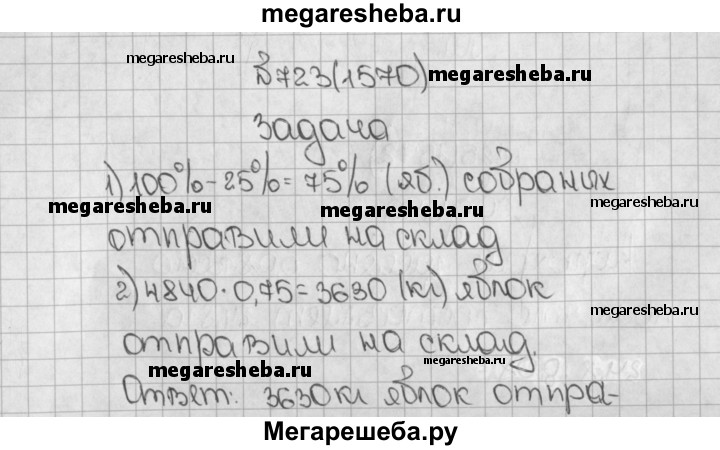 megaresheba.ru
№723(1570)
megaresheba.ru
megaresheba.ru
Задача
1) 100% - 25% = 75% (яб.) собраних
megaresheba.ru
megaresheba.ru
megaresheba.ru
отправили на склад
2) 4840 · 0,75 = 3630 (кг) яблок
megaresheba.ru
отправили на склад.
Ответ: 3630 кг яблок отпра-
megaresheba.ru
megaresheba.ru
megaresheba.ru
Мегарешеба.ру